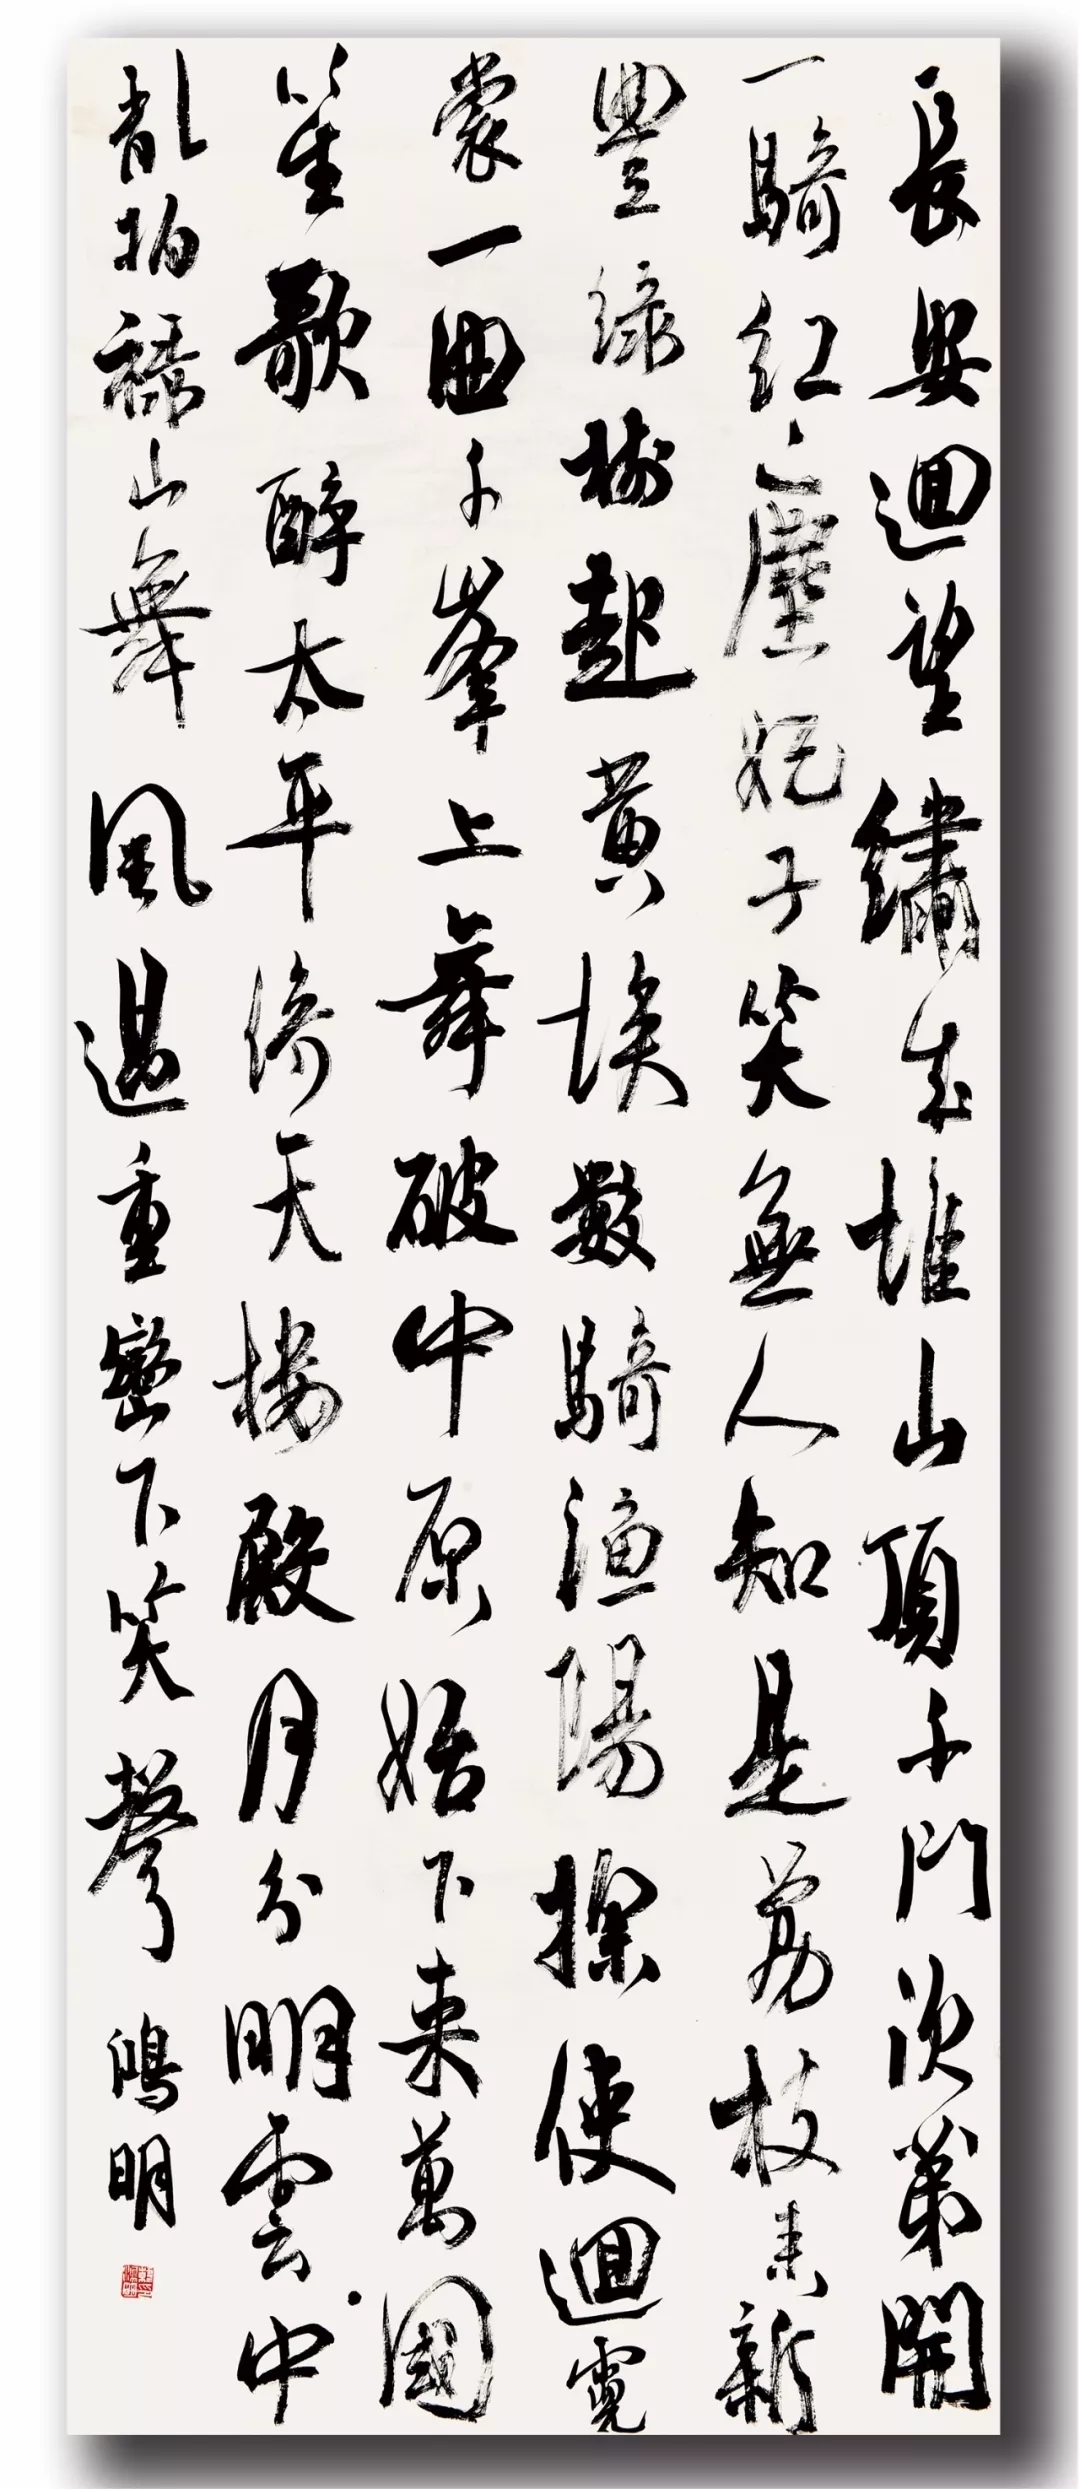 長安迴望繡成堆山頂千門次第開
一騎紅塵妃子笑無人知是荔枝来新
豐綠樹起黄埃數騎漁陽探使迴霓
裳一曲千峯上舞破中原始下来萬國
笙歌醉太平倚天樓殿月分明雲中
亂拍祿山舞風過重巒下笑聲
鴻明